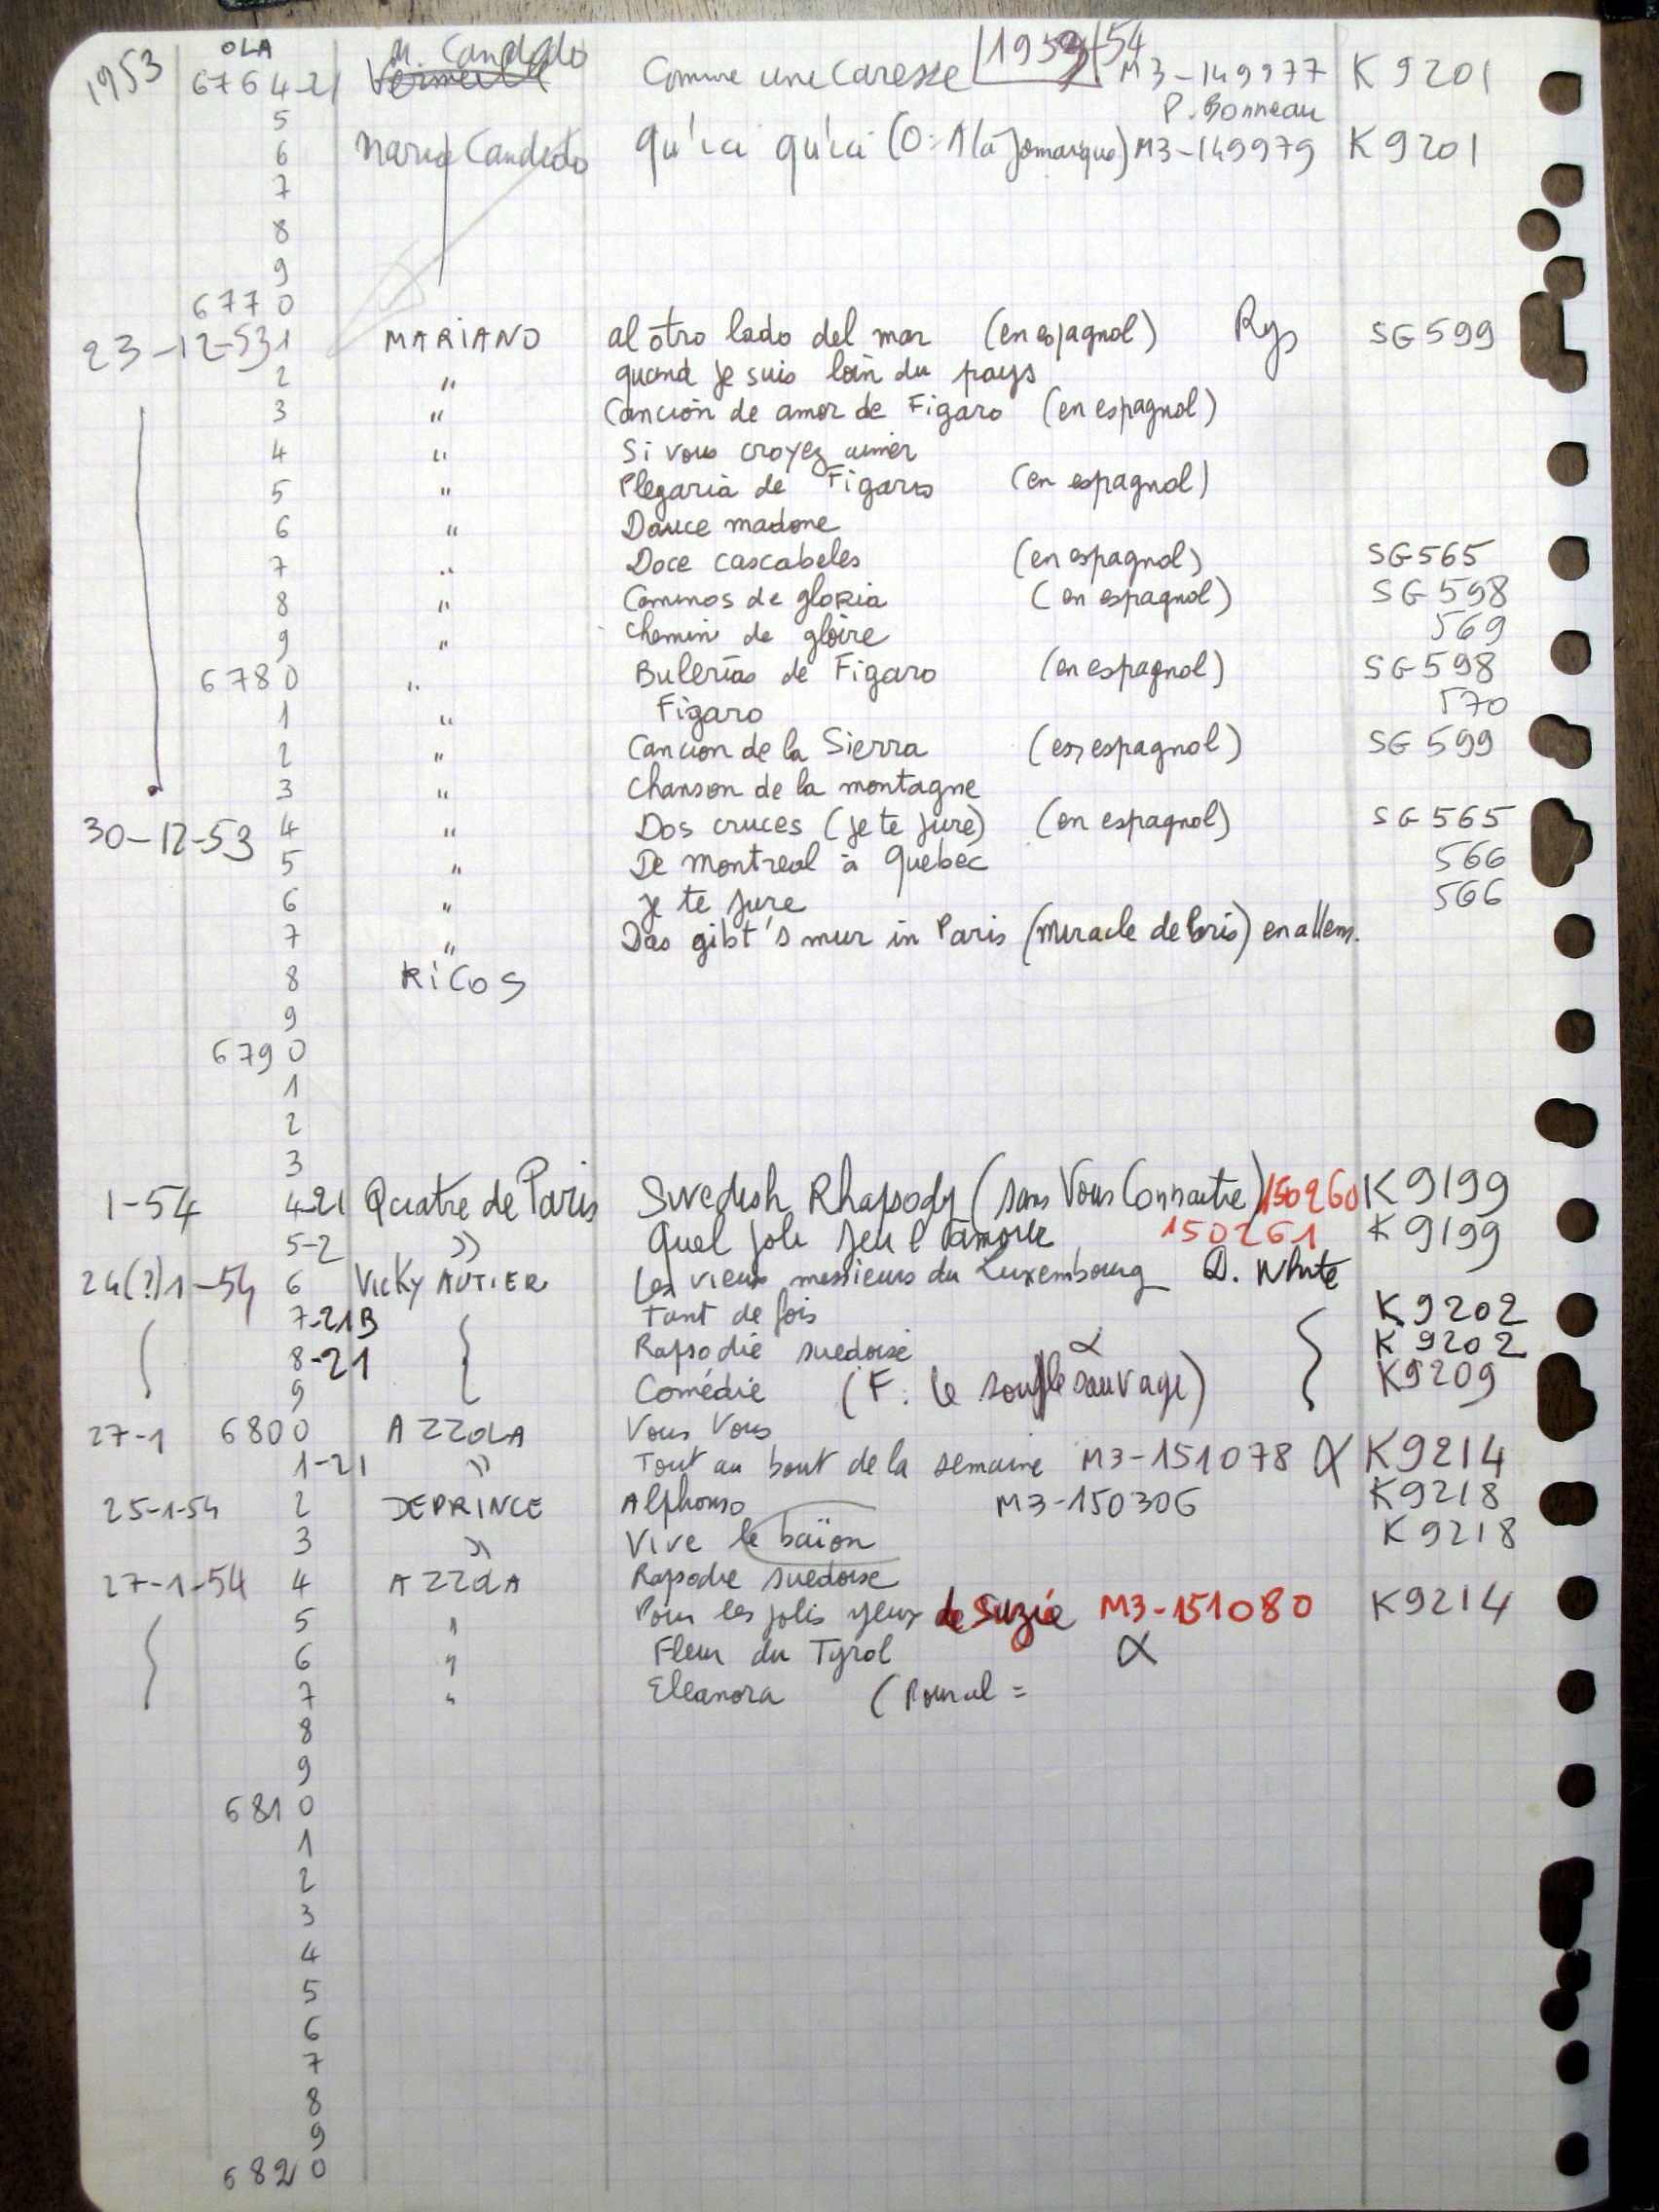 1953 OLA M. Candido 1953-54
6764-21 Comme une caresse M3-149977 K9201
5 P. Bonneau
6 Maria Candido Qu'ici qu'ici (O: Ala Jomarque) M3-149979 K9201
7
8
9
6770
23-12-53 1 MARIANO al otro lado del mar (en espagnol) Rys SG 599
2 " quand je suis loin du pays
3 " Canción de amor de Figaro (en espagnol)
4 " Si vous croyez aimer
5 " Plegaria de Figaro (en espagnol)
6 " Douce madone
7 " Doce cascabeles (en espagnol) SG 565
8 " Caminos de gloria (en espagnol) SG 598
9 " Chemin de gloire 569
6780 " Bulerias de Figaro (en espagnol) SG 598
1 " Figaro 570
2 " Cancion de la Sierra (en espagnol) SG 599
3 " Chanson de la montagne
30-12-53 4 " Dos cruces (je te jure) (en espagnol) SG 565
5 " De Montreal à Quebec 566
6 " je te jure 566
7 " Das gibt's nur in Paris (miracle de Paris) en allem.
8 RICOS
9
6790
1
2
3
1-54 4-21 Quatre de Paris Swedish Rhapsody (sans Vous Connaitre) 150260 K9199
5-2 » Quel joli jeu l'amour 150261 K9199
24(?)1-54 6 Vicky AUTIER Les vieux messieurs du Luxembourg D. White
7-21B Tant de fois K9202
8-21 Rapsodie suedoise α K9202
9 Comédie (F. le souffle sauvage) K9209
27-1 6800 AZZOLA Vous Vous
1-21 » Tout au bout de la semaine M3-151078 α K9214
25-1-54 2 DEPRINCE Alphonso M3-150306 K9218
3 » Vive le baïon K9218
27-1-54 4 AZZOLA Rapsodie suedoise
5 " Pour les jolis yeux de Suzie M3-151080 K9214
6 " Fleur du Tyrol α
7 " Eleanora (Poural =
8
9
6810
1
2
3
4
5
6
7
8
9
6820